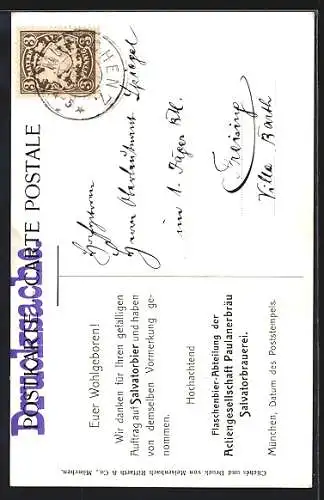 POSTKARTE. CARTE POSTALE
Drucksache.
Euer Wohlgeboren!
Wir danken für Ihren gefälligen
Auftrag auf Salvatorbier und haben
von demselben Vormerkung ge-
nommen.
Hochachtend
Flaschenbier-Abteilung der
Actiengesellschaft Paulanerbräu
Salvatorbrauerei.
München, Datum des Poststempels.
Clichés und Druck von Meisenbach Riffarth & Co., München.
3 3
CHEN 7.
Herrn Oberleutnant Spiegel
im 1. Jäger Btl.
Freising
Villa Barth